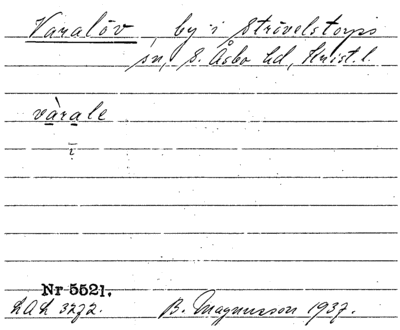 Varalöv, by i Strövelstorps
sn, S. Åsbo hd, Krist. l.
vàrale
i
Nr 5521.
LAL 3272. B. Magnusson 1937.